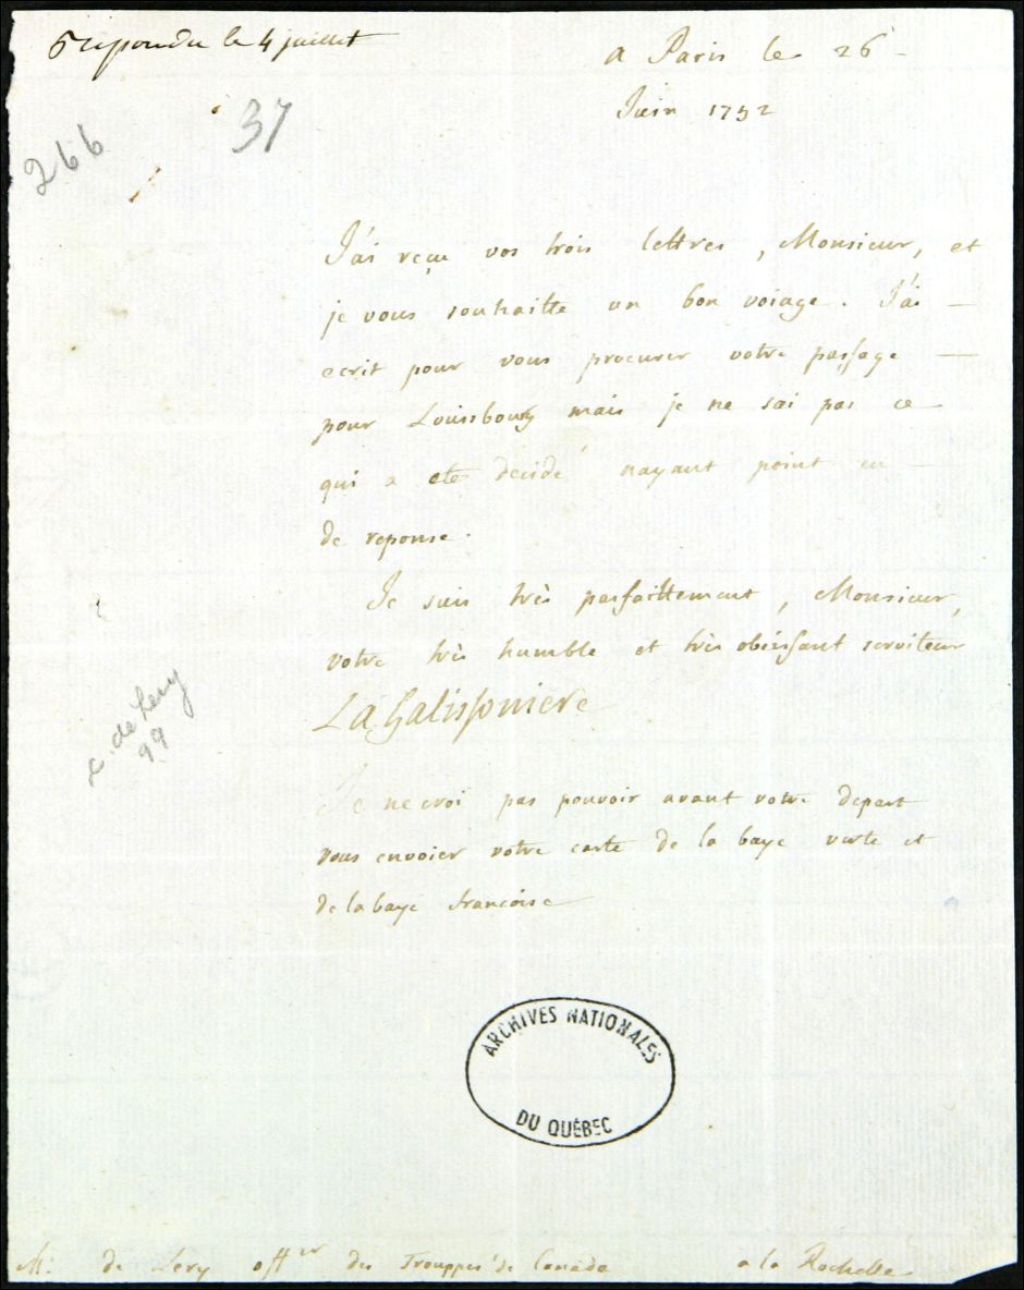 repondu le 4 juillet
a Paris le 26
Juin 1752
37
266
J'ai reçu vos trois lettres, Monsieur, et
je vous souhaitte un bon voiage. J'ai
ecrit pour vous procurer votre passage
pour Louisbourg mais je ne sai pas ce
qui a eté decidé nayant point eu
de reponse.
Je suis très parfaittement, Monsieur,
votre très humble et très obeissant serviteur
La Galissoniere
C. de Lery
99
Je ne croi pas pouvoir avant votre depart
vous envoier votre carte de la baye verte et
de la baye francoise
ARCHIVES NATIONALES
DU QUÉBEC
M. de Lery offer des Trouppes de Canada a la Rochelle